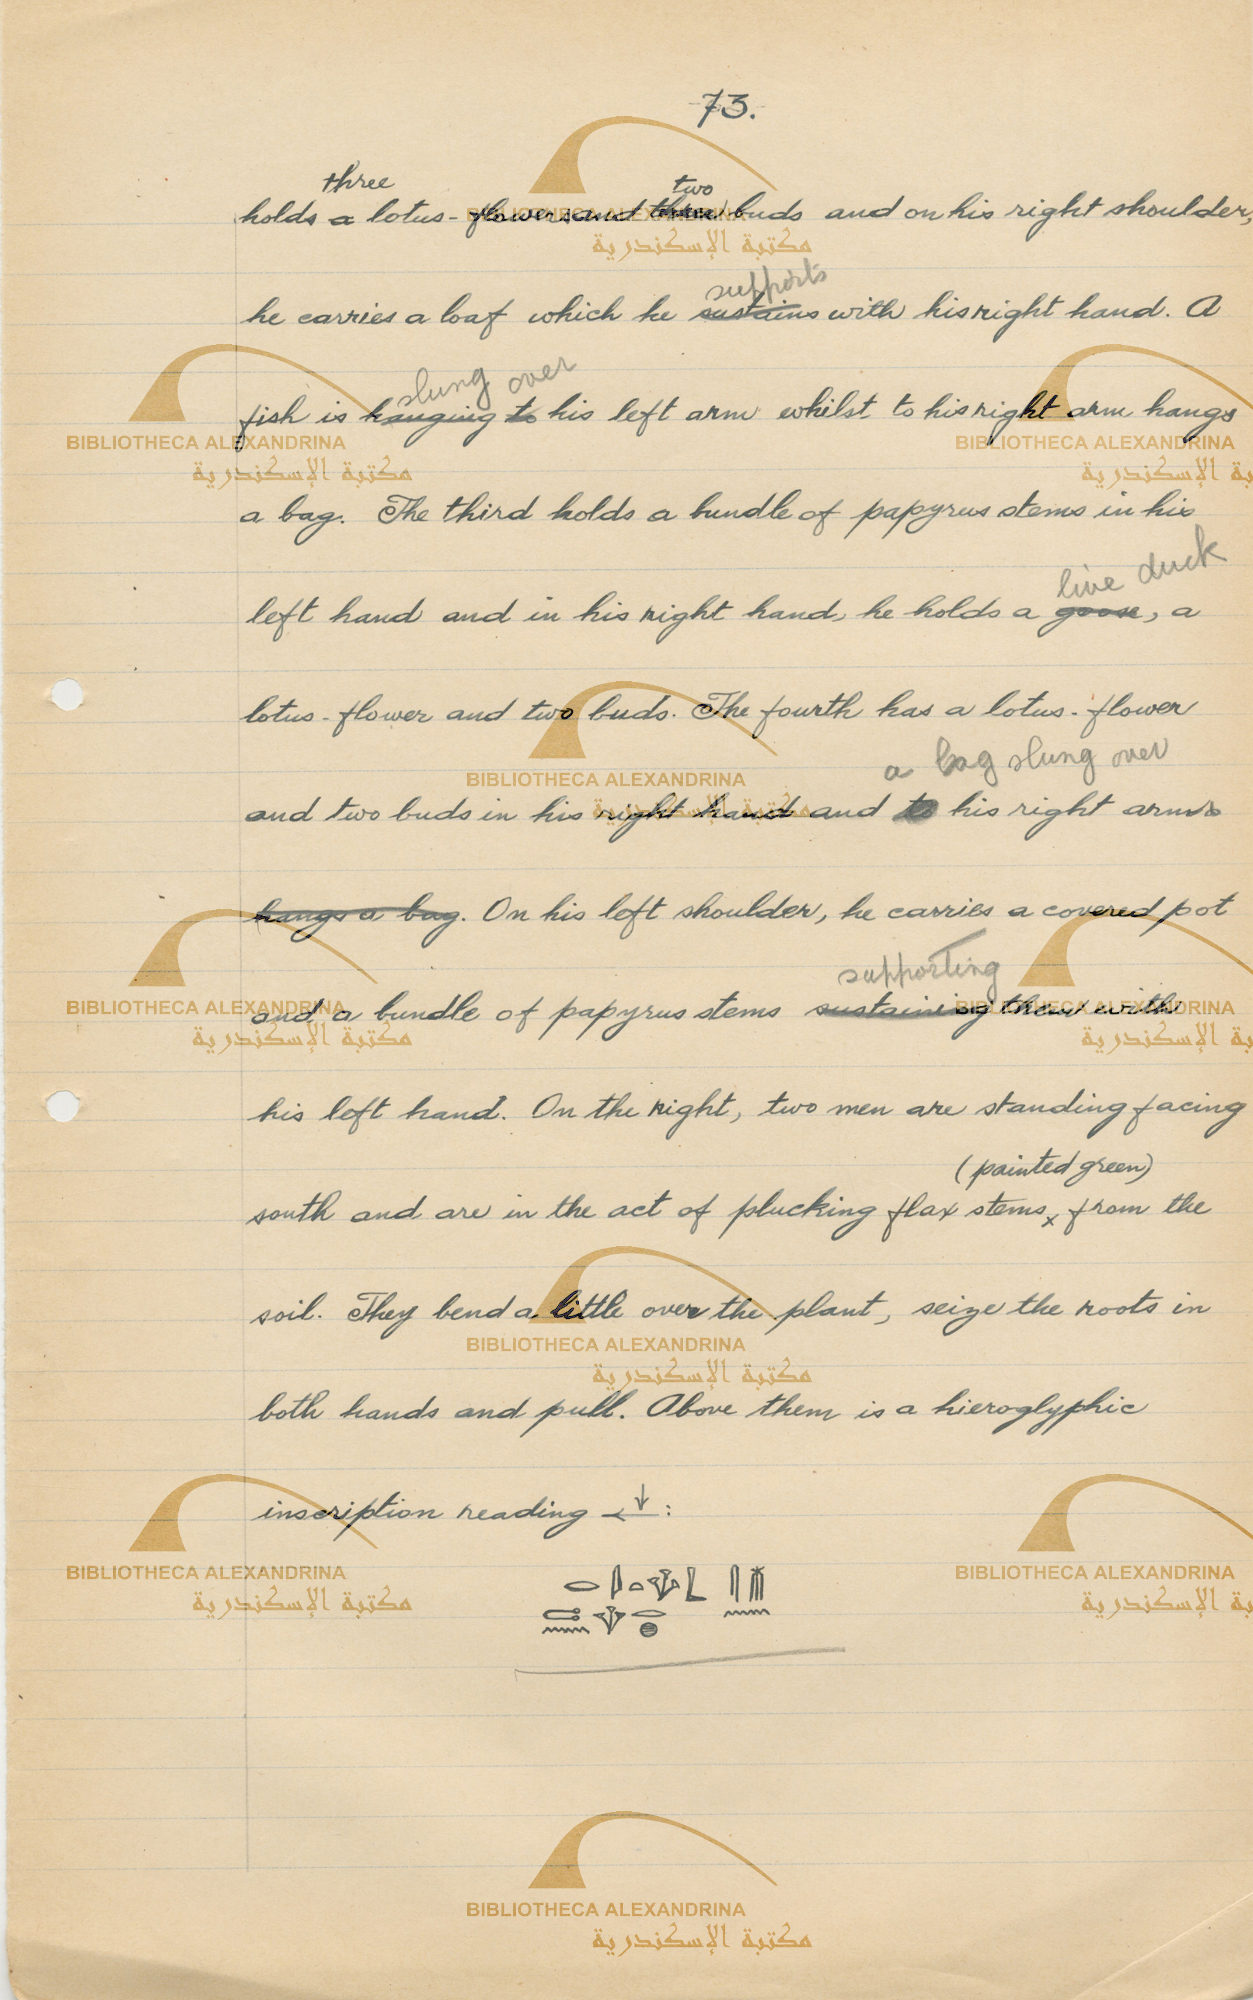 73.
three two
holds a lotus-flowers and three buds and on his right shoulder,
supports
he carries a loaf which he sustains with his right hand. A
slung over
fish is hanging to his left arm whilst to his right arm hangs
a bag. The third holds a bundle of papyrus stems in his
live duck
left hand and in his right hand, he holds a goose, a
lotus-flower and two buds. The fourth has a lotus-flower
a bag slung over
and two buds in his right hand and to his right arm
hangs a bag. On his left shoulder, he carries a covered pot
supporting
and a bundle of papyrus stems sustaining them with
his left hand. On the right, two men are standing facing
(painted green)
south and are in the act of plucking flax stems x from the
soil. They bend a little over the plant, seize the roots in
both hands and pull. Above them is a hieroglyphic
inscription reading ←↓:
BIBLIOTHECA ALEXANDRINA
مكتبة الإسكندرية